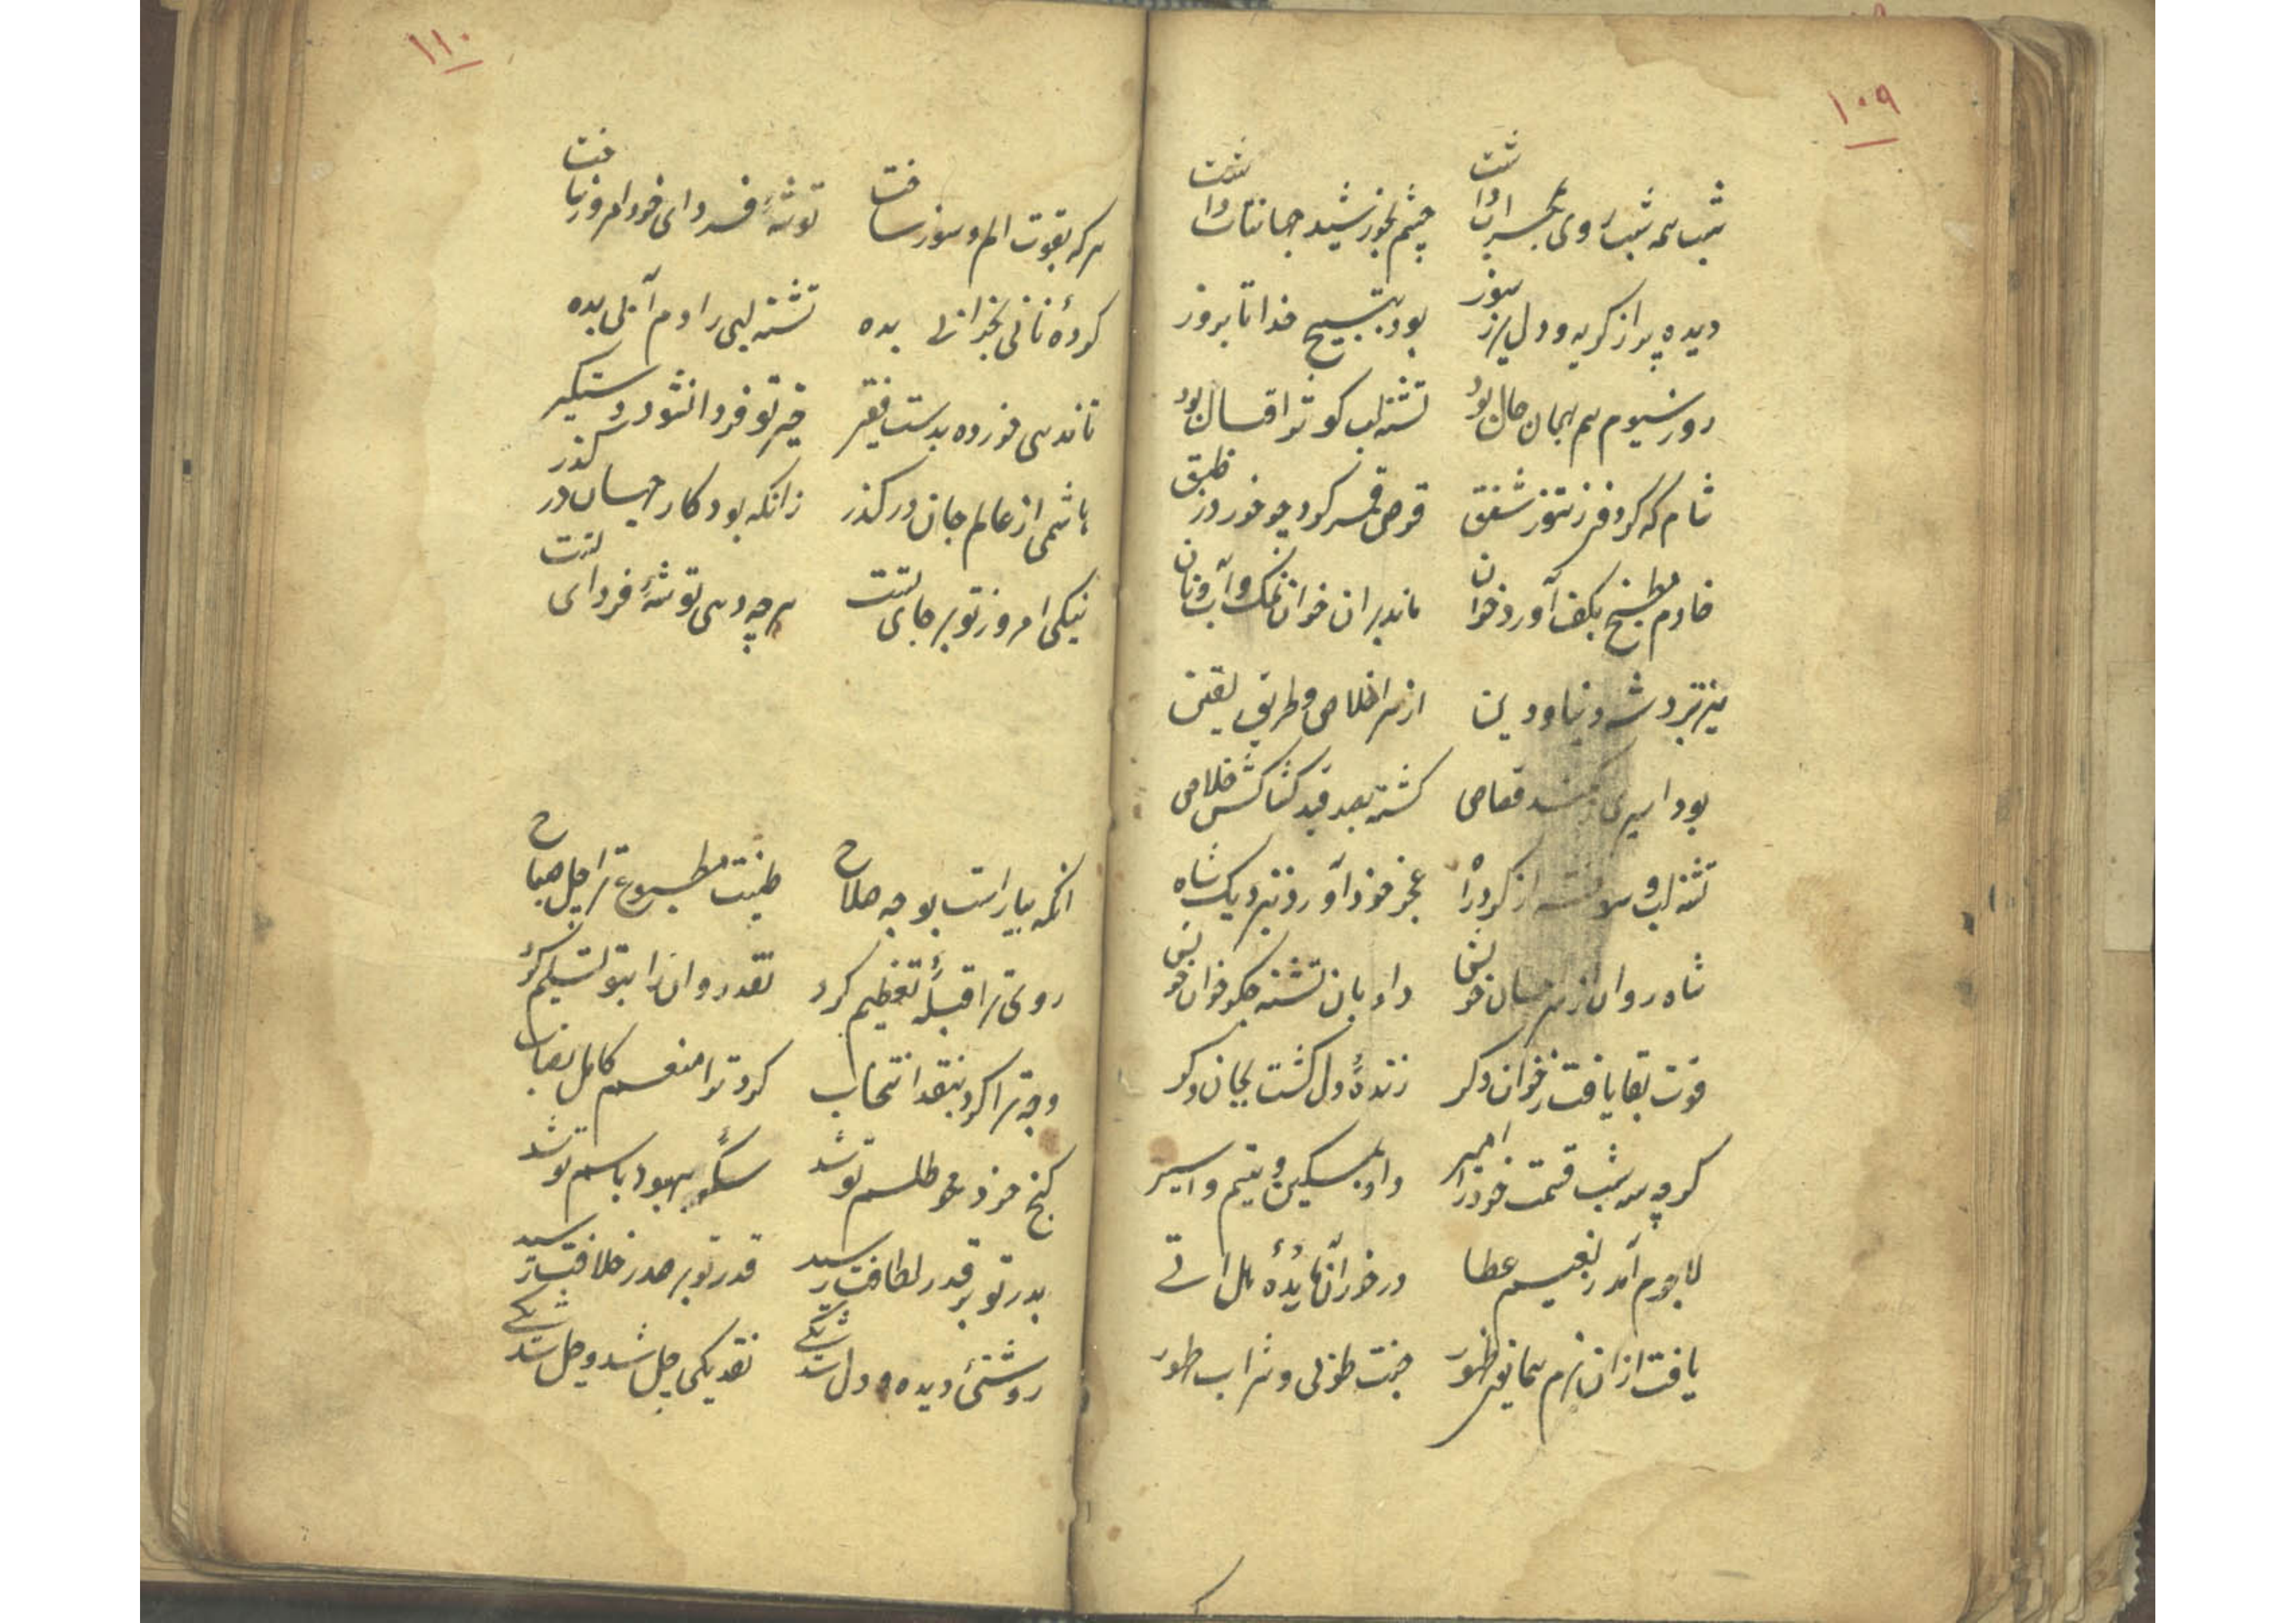 ١٠٩
شب همه شب روی بمحراب داشت چشم بخورشید جهانتاب داشت
دیده پر از گریه و دل پر ز سوز بود بتسبیح خدا تا بروز
روز سیوم هم بهمان حال بود تشنه لب کوثر افسال بود
شام که کرد قرص تنور شفق قرص قمر کرد چو خور در طبق
خادم مطبخ بکف آورد خوان ماند بران خوان نمک و آب و نان
میز نبرد شه دنیا و دین از سر اخلاص و طریق یقین
بود اسیری قصاص کشته بصد قید کشاکش خلاص
تشنه لب و سوخته از کرد راه عجز خود آورد نزدیک شاه
شاه روان از سر خویش داد بان تشنه جگر خوان خویش
قوت بقا یافت ز خوان دگر زندهٔ دل گشت بجان دگر
گرچه سه شب قسمت خود را امیر داد بمسکین و یتیم و اسیر
لاجرم آمد ز نعیم عطا در خور آن مایدهٔ هل اتی
یافت از آن بزم سخا نور ظهور جنت طوبی و شراب طهور
١١٠
هر که بقوت الم و سوز ساخت توشهٔ فردای خود امروز یافت
گردهٔ نانی بخزانی بده تشنه لبی را دم آبی بده
تا ندهی خورده بدست فقیر خیر تو فردا نشود دستگیر
هاشمی از عالم جان در گذر زانکه بود کار جهان در گذر
نیکی امروز تو بر جای تست هر چه دهی توشهٔ فردای تست
آنکه بیاراست بوجه صلاح طینت مطبوع ترا چل صباح
روی ترا قبلهٔ تعظیم کرد نقد روان را بتو تسلیم کرد
وجه ترا کرد بنقد انتخاب کرد ترا منعم کامل نصاب
گنج خرد محو طلسم تو شد سکهٔ بهبود باسم تو شد
بدر تو بر قدر لطافت رسید قدر تو بر صدر خلافت رسید
روشنئ دیده و دل شد یکی نقد یکی چل شد و چل شد یکی